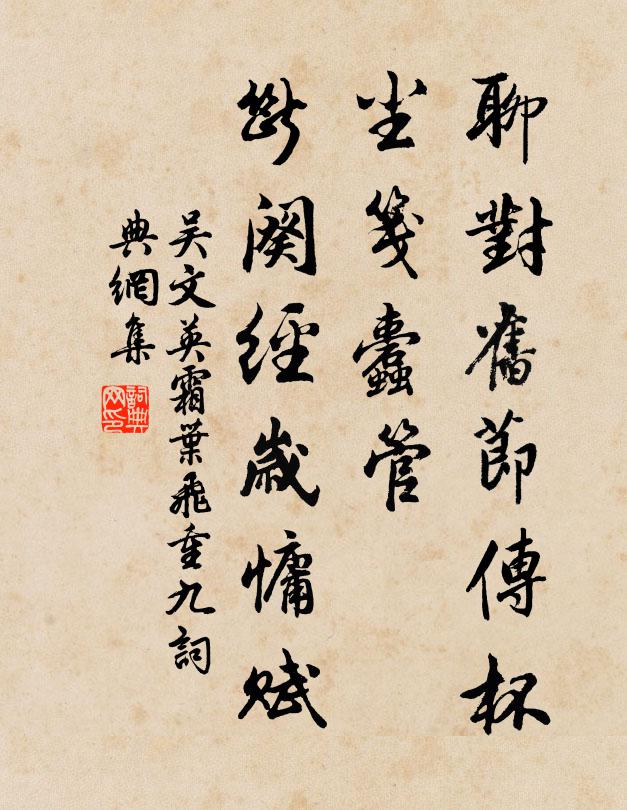 聊對舊節傳杯
尘箋蠹管
斷闋經歲慵賦
吳文英霜葉飛重九詞
典網集
詞典
网印